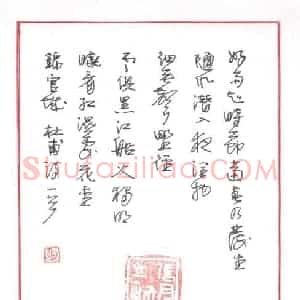 好雨知時節當春乃發生
隨風潛入夜潤物
細無聲野徑
雲俱黑江船火獨明
曉看紅濕處花重
錦官城 杜甫詩一首
Shufaziliao.com